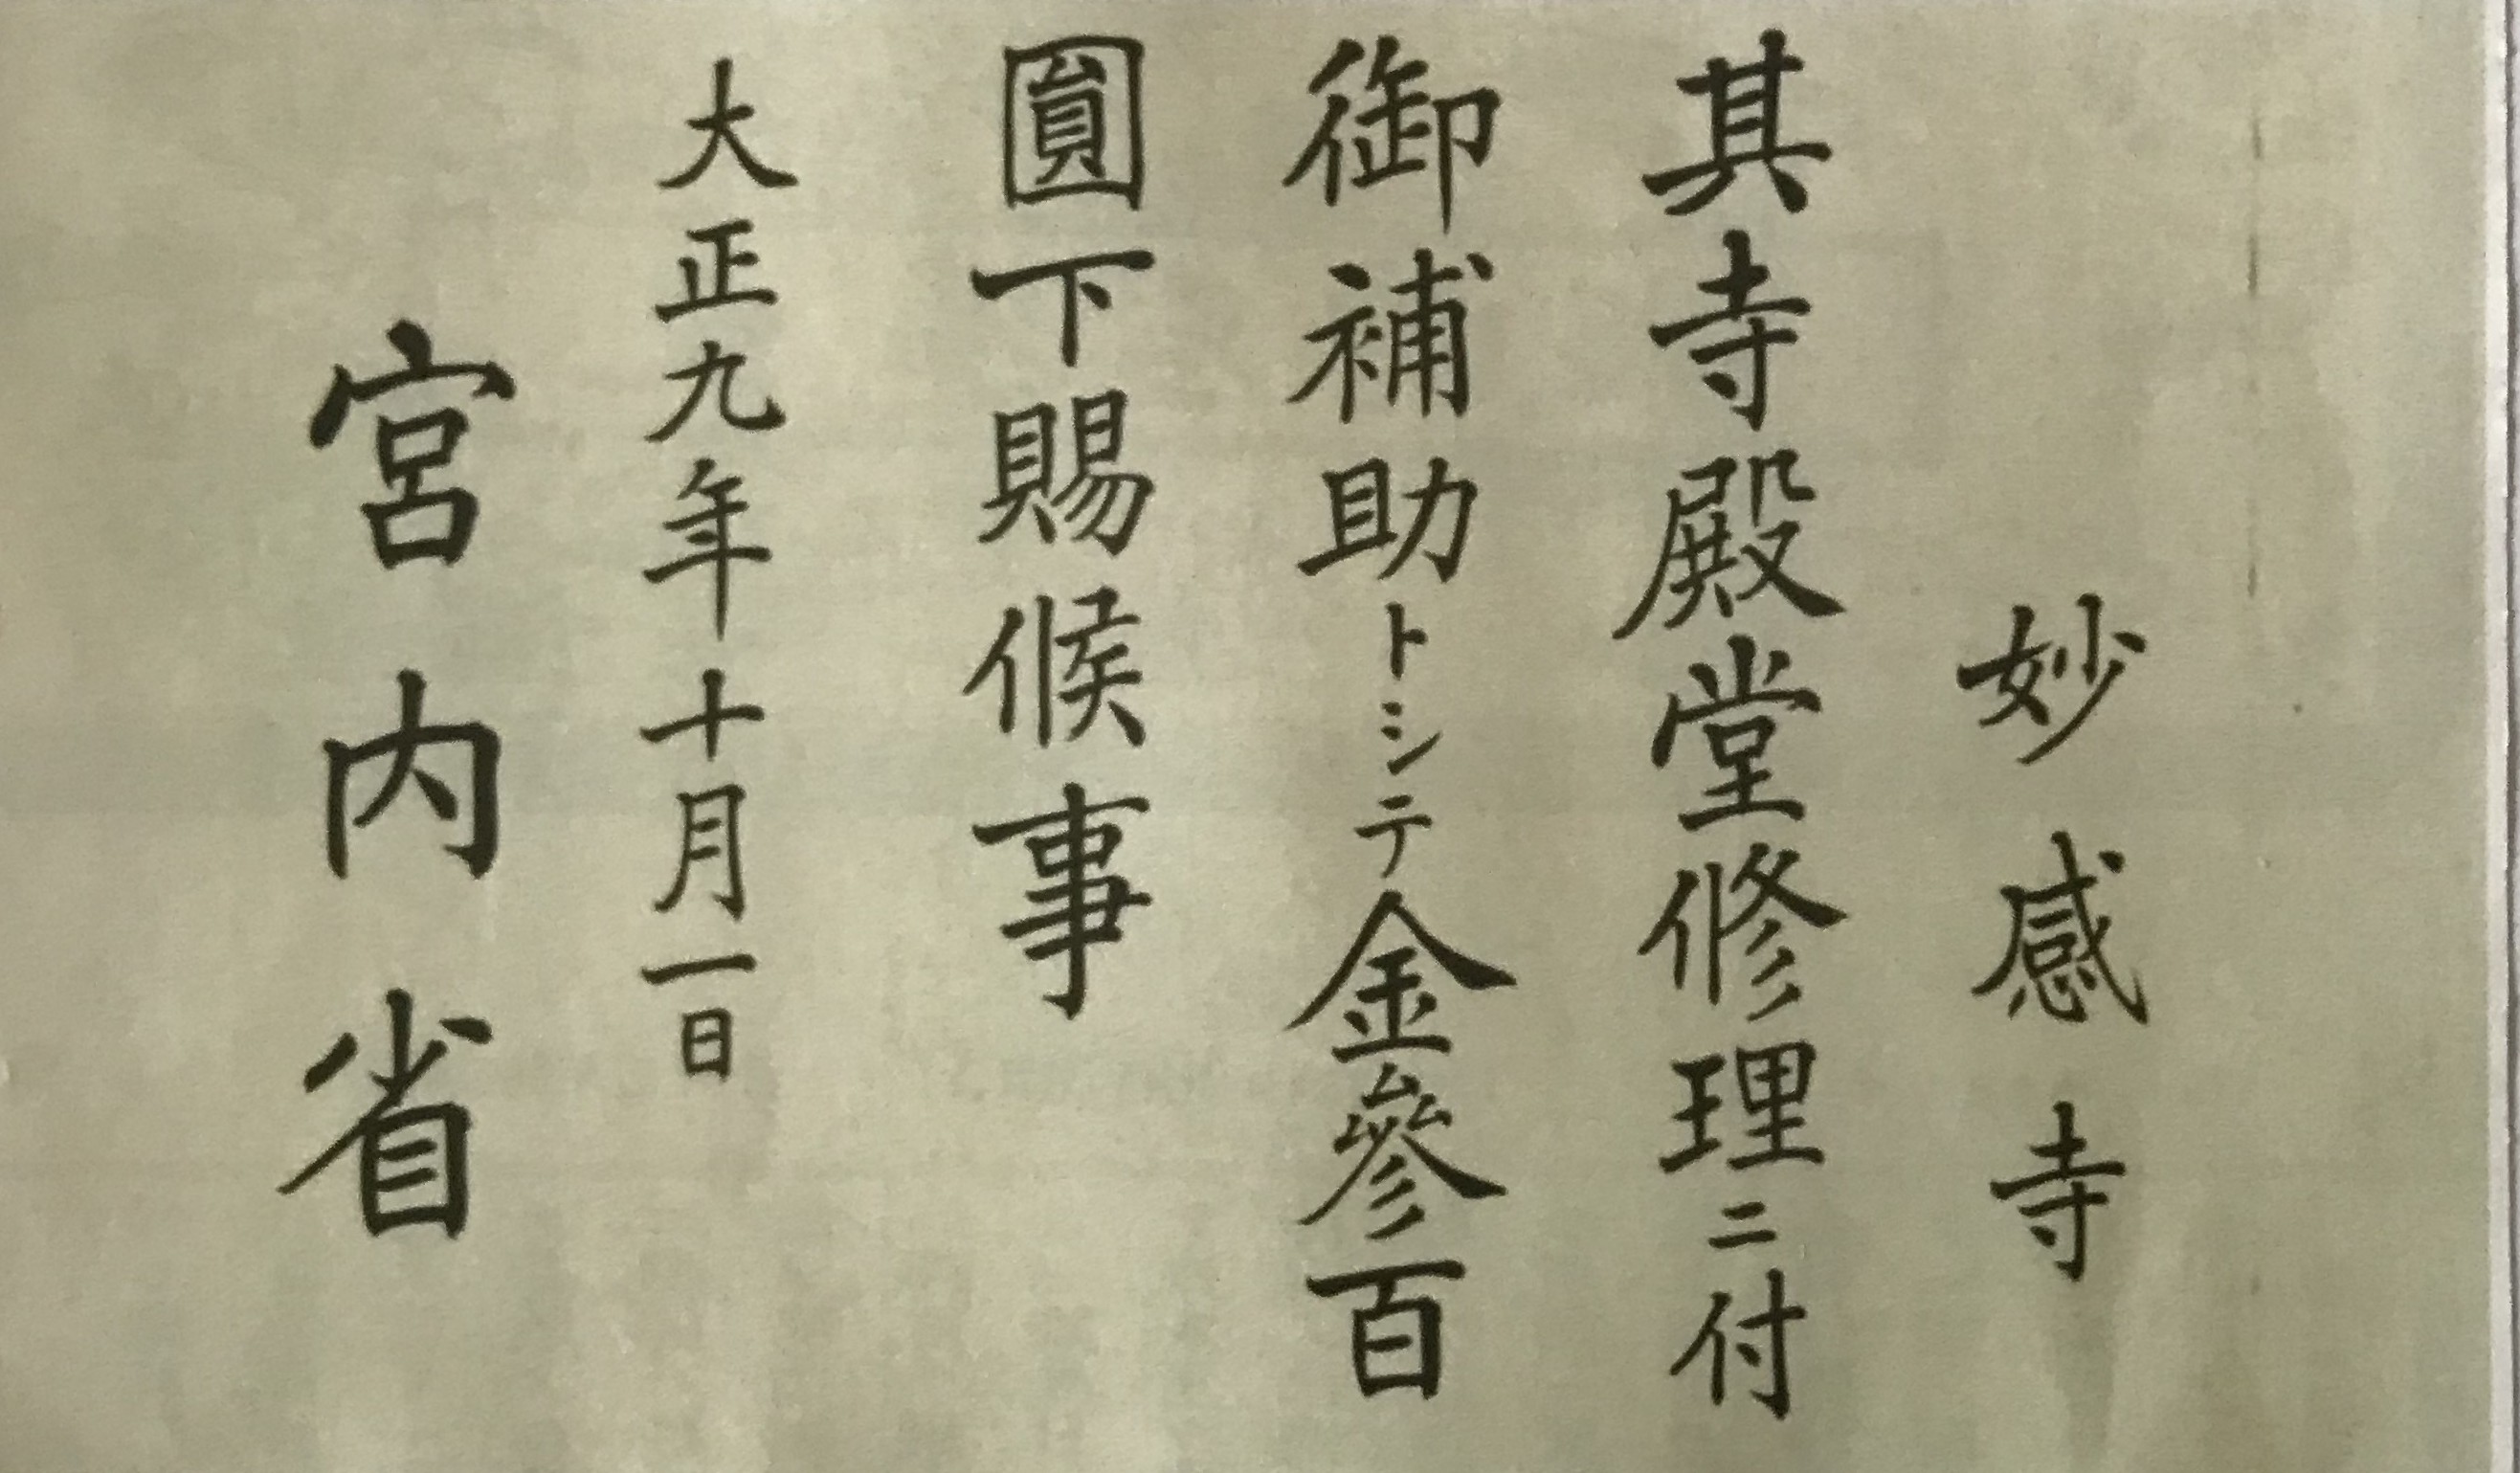 妙感寺
其寺殿堂修理ニ付
御補助トシテ金參百
圓下賜候事
大正九年十月一日
宮内省